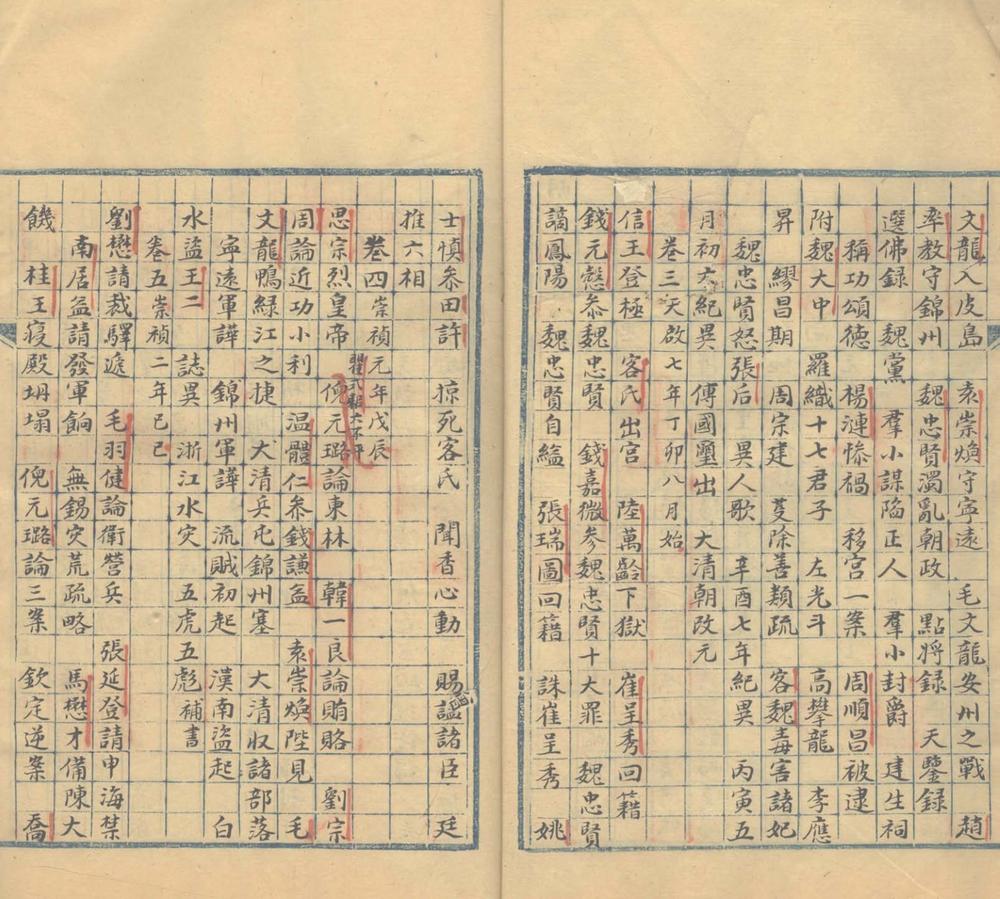 文龍入皮島 袁崇煥守寧遠 毛文龍安州之戰 趙
率教守錦州 魏忠賢濁亂朝政 點將録 天鑒録
選佛録 魏黨 羣小謀陷正人 羣小封爵 建生祠
稱功頌德 楊漣慘禍 移宮一案 周順昌被逮
附魏大中 羅織十七君子 左光斗 高攀龍 李應
昇 繆昌期 周宗建 芟除善類疏 客魏毒害諸妃
魏忠賢怒張后 異人歌 辛酉七年紀異 丙寅五
月初六紀異 傳國璽出 大清朝改元
卷三天啟七年丁卯八月始
信王登極 客氏出宮 陸萬齡下獄 崔呈秀回籍
錢元慤叅魏忠賢 錢嘉徵參魏忠賢十大罪 魏忠賢
謫鳳陽 魏忠賢自縊 張瑞圖回籍 誅崔呈秀 姚
士慎叅田許 掠死客氏 聞香心動 賜謚諸臣 廷
推六相
卷四崇禎元年戊辰
思宗烈皇帝 倪元璐論東林 韓一良論賄賂 劉宗
周論近功小利 温體仁叅錢謙益 袁崇煥陛見 毛
文龍鴨緑江之捷 大清兵屯錦州塞 大清収諸部落
寧遠軍譁 錦州軍譁 流賊初起 漢南盜起 白
水盜王二 誌異 浙江水灾 五虎五彪補書
卷五崇禎二年己巳
劉懋請裁驛遞 毛羽健論衛營兵 張延登請申海禁
南居益請發軍餉 無錫灾荒疏略 馬懋才備陳大
饑 桂王寢殿坍塌 倪元璐論三案 欽定逆案 喬